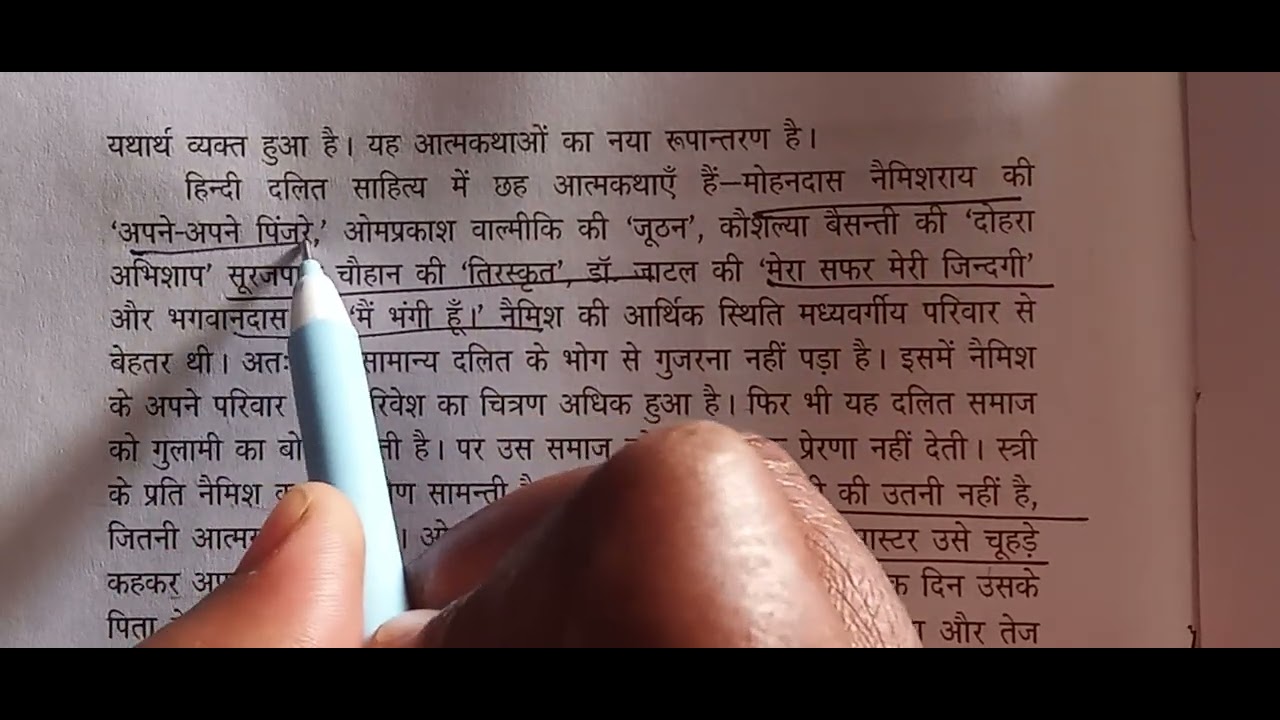 यथार्थ व्यक्त हुआ है। यह आत्मकथाओं का नया रूपान्तरण है।
हिन्दी दलित साहित्य में छह आत्मकथाएँ हैं–मोहनदास नैमिशराय की
‘अपने-अपने पिंजरे,’ ओमप्रकाश वाल्मीकि की ‘जूठन’, कौशल्या बैसन्ती की ‘दोहरा
अभिशाप’ चौहान की ‘तिरस्कृत’, डॉ. जाटल की ‘मेरा सफर मेरी जिन्दगी’
और भगवानदास ‘मैं भंगी हूँ।’ नैमिश की आर्थिक स्थिति मध्यवर्गीय परिवार से
बेहतर थी। सामान्य दलित के भोग से गुजरना नहीं पड़ा है। इसमें नैमिश
के अपने परिवार का चित्रण अधिक हुआ है। फिर भी यह दलित समाज
को गुलामी का है। पर उस समाज प्रेरणा नहीं देती। स्त्री
के प्रति नैमिश सामन्ती की उतनी नहीं है,
जितनी उसे चूहड़े
कहकर दिन उसके
पिता और तेज